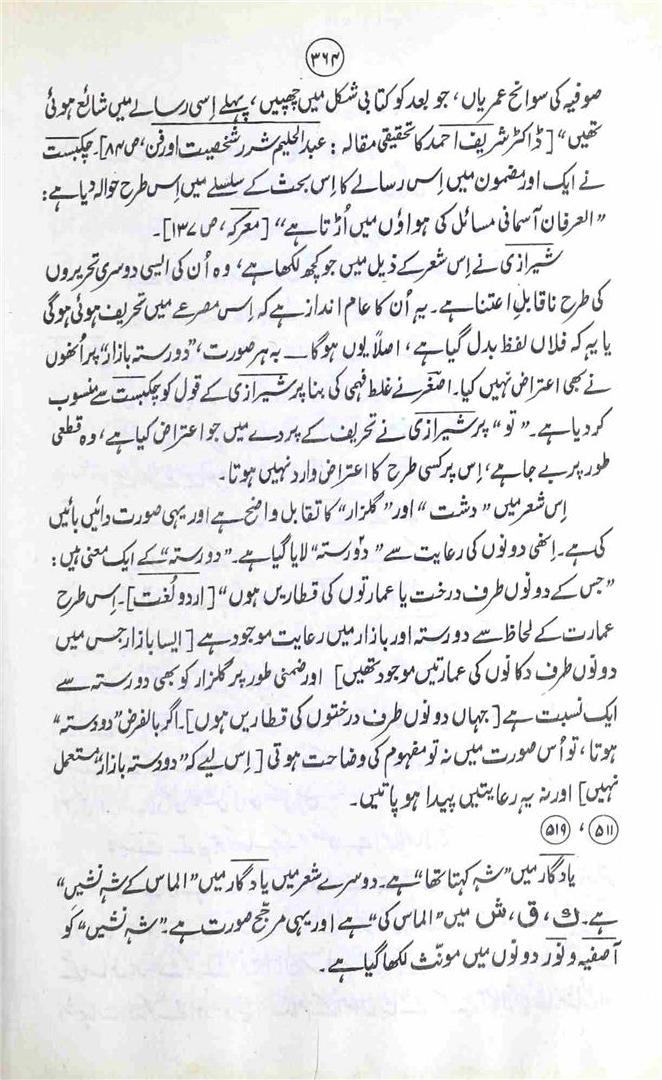 ۳۶۴
صوفیہ کی سوانح عمریاں، جو بعد کو کتابی شکل میں چھپیں، پہلے اِسی رسالے میں شائع ہوئی
تھیں" [ڈاکٹر شریف احمد کا تحقیقی مقالہ: عبدالحلیم شرر شخصیت اور فن، ص ۸۴]۔ چکبست
نے ایک اور مضمون میں اِس رسالے کا اِس بحث کے سلسلے میں اِس طرح حوالہ دیا ہے:
"العرفان آسمانی مسائل کی ہواؤں میں اُڑتا ہے" [معرکہ، ص ۱۳۷]۔
شیرازی نے اِس شعر کے ذیل میں جو کچھ لکھا ہے، وہ اُن کی ایسی دوسری تحریروں
کی طرح ناقابلِ اعتنا ہے۔ یہ اُن کا عام انداز ہے کہ اِس مصرعے میں تحریف ہوئی ہوگی
یا یہ کہ فلاں لفظ بدل گیا ہے، اصلاً یوں ہوگا ــ بہ ہر صورت، "دو رستہ بازار" پر اُنھوں
نے بھی اعتراض نہیں کیا۔ اصغر نے غلط فہمی کی بنا پر شیرازی کے قول کو چکبست سے منسوب
کر دیا ہے۔ "تو" پر شیرازی نے تحریف کے پردے میں جو اعتراض کیا ہے، وہ قطعی
طور پر بے جا ہے، اِس پر کسی طرح کا اعتراض وارد نہیں ہوتا۔
اِس شعر میں "دشت" اور "گلزار" کا تقابل واضح ہے اور یہی صورت دائیں بائیں
کی ہے۔ اِنھی دونوں کی رعایت سے "دو رستہ" لایا گیا ہے۔ "دو رستہ" کے ایک معنی ہیں:
"جس کے دونوں طرف درخت یا عمارتوں کی قطاریں ہوں" [اردو لُغت]۔ اِس طرح
عمارت کے لحاظ سے دو رستہ اور بازار میں رعایت موجود ہے [ایسا بازار جس میں
دونوں طرف دکانوں کی عمارتیں موجود تھیں] اور ضمنی طور پر گلزار کو بھی دو رستہ سے
ایک نسبت ہے [جہاں دونوں طرف درختوں کی قطاریں ہوں]۔ اگر بالفرض "دو دستہ"
ہوتا، تو اُس صورت میں نہ تو مفہوم کی وضاحت ہوتی [اِس لیے کہ "دو دستہ بازار" مستعمل
نہیں] اور نہ یہ رعایتیں پیدا ہو پاتیں۔
۵۱۱، ۵۱۹
یادگار میں "شہ کہتا تھا" ہے۔ دوسرے شعر میں یادگار میں "الماس کے شہ نشیں"
ہے۔ ک، ق، ش میں "الماس کی" ہے اور یہی مرجّح صورت ہے۔ "شہ نشیں" کو
آصفیہ و نور دونوں میں مونّث لکھا گیا ہے۔